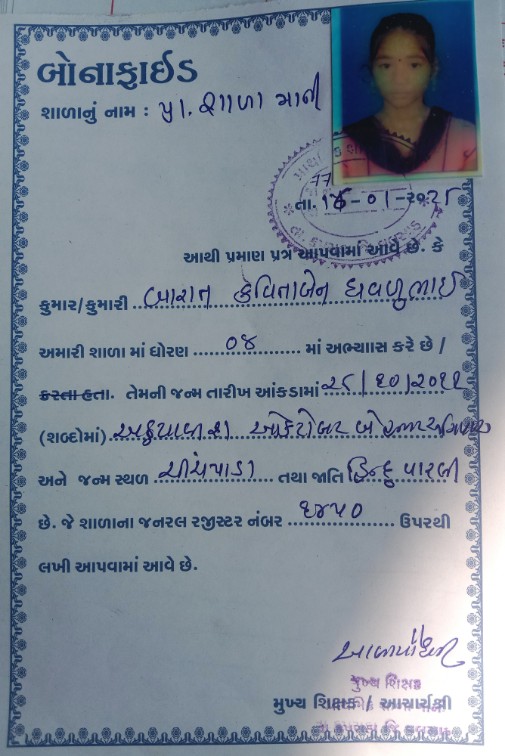 બોનાફાઈડ
શાળાનું નામ : પ્રા. શાળા માની
તા. ૧૪-૦૧-૨૦૨૧
આથી પ્રમાણ પત્ર આપવામાં આવે છે. કે
કુમાર/કુમારી બારાત કવિતાબેન ધવળુભાઈ
અમારી શાળા માં ધોરણ ૦૪ માં અભ્યાસ કરે છે /
કરતા હતા. તેમની જન્મ તારીખ આંકડામાં ૨૮/૧૦/૨૦૧૧
(શબ્દોમાં) અઠ્ઠયાવીશ ઓક્ટોબર બે હજાર અગિયાર
અને જન્મ સ્થળ ચીચપાડા તથા જાતિ હિન્દુ વારલી
છે. જે શાળાના જનરલ રજીસ્ટર નંબર ૧૪૫૦ ઉપરથી
લખી આપવામાં આવે છે.
મુખ્ય શિક્ષક
મુખ્ય શિક્ષક / આચાર્યશ્રી